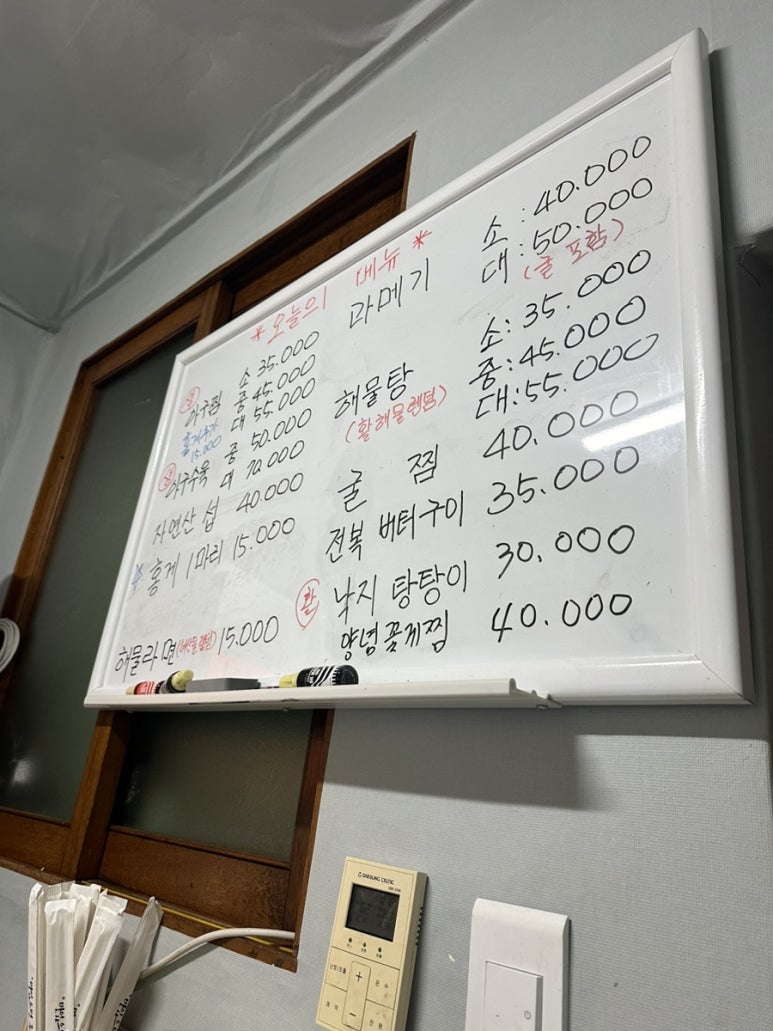 * 오늘의 메뉴 *
생 아구찜 소 35.000
중 45.000
대 55.000
홍게추가
15.000
생 아구수육 중 50.000
대 70.000
자연산 섭 40.000
홍게 1마리 15.000
해물라면 (해물랜덤) 15.000
과메기 소 : 40.000
대 : 50.000
(굴 포함)
해물탕 소 : 35.000
(활해물랜덤) 중 : 45.000
대 : 55.000
굴 찜 40.000
전복 버터구이 35.000
활 낙지 탕탕이 30.000
양념 꽃게찜 40.000
DAESUNG CELTIC